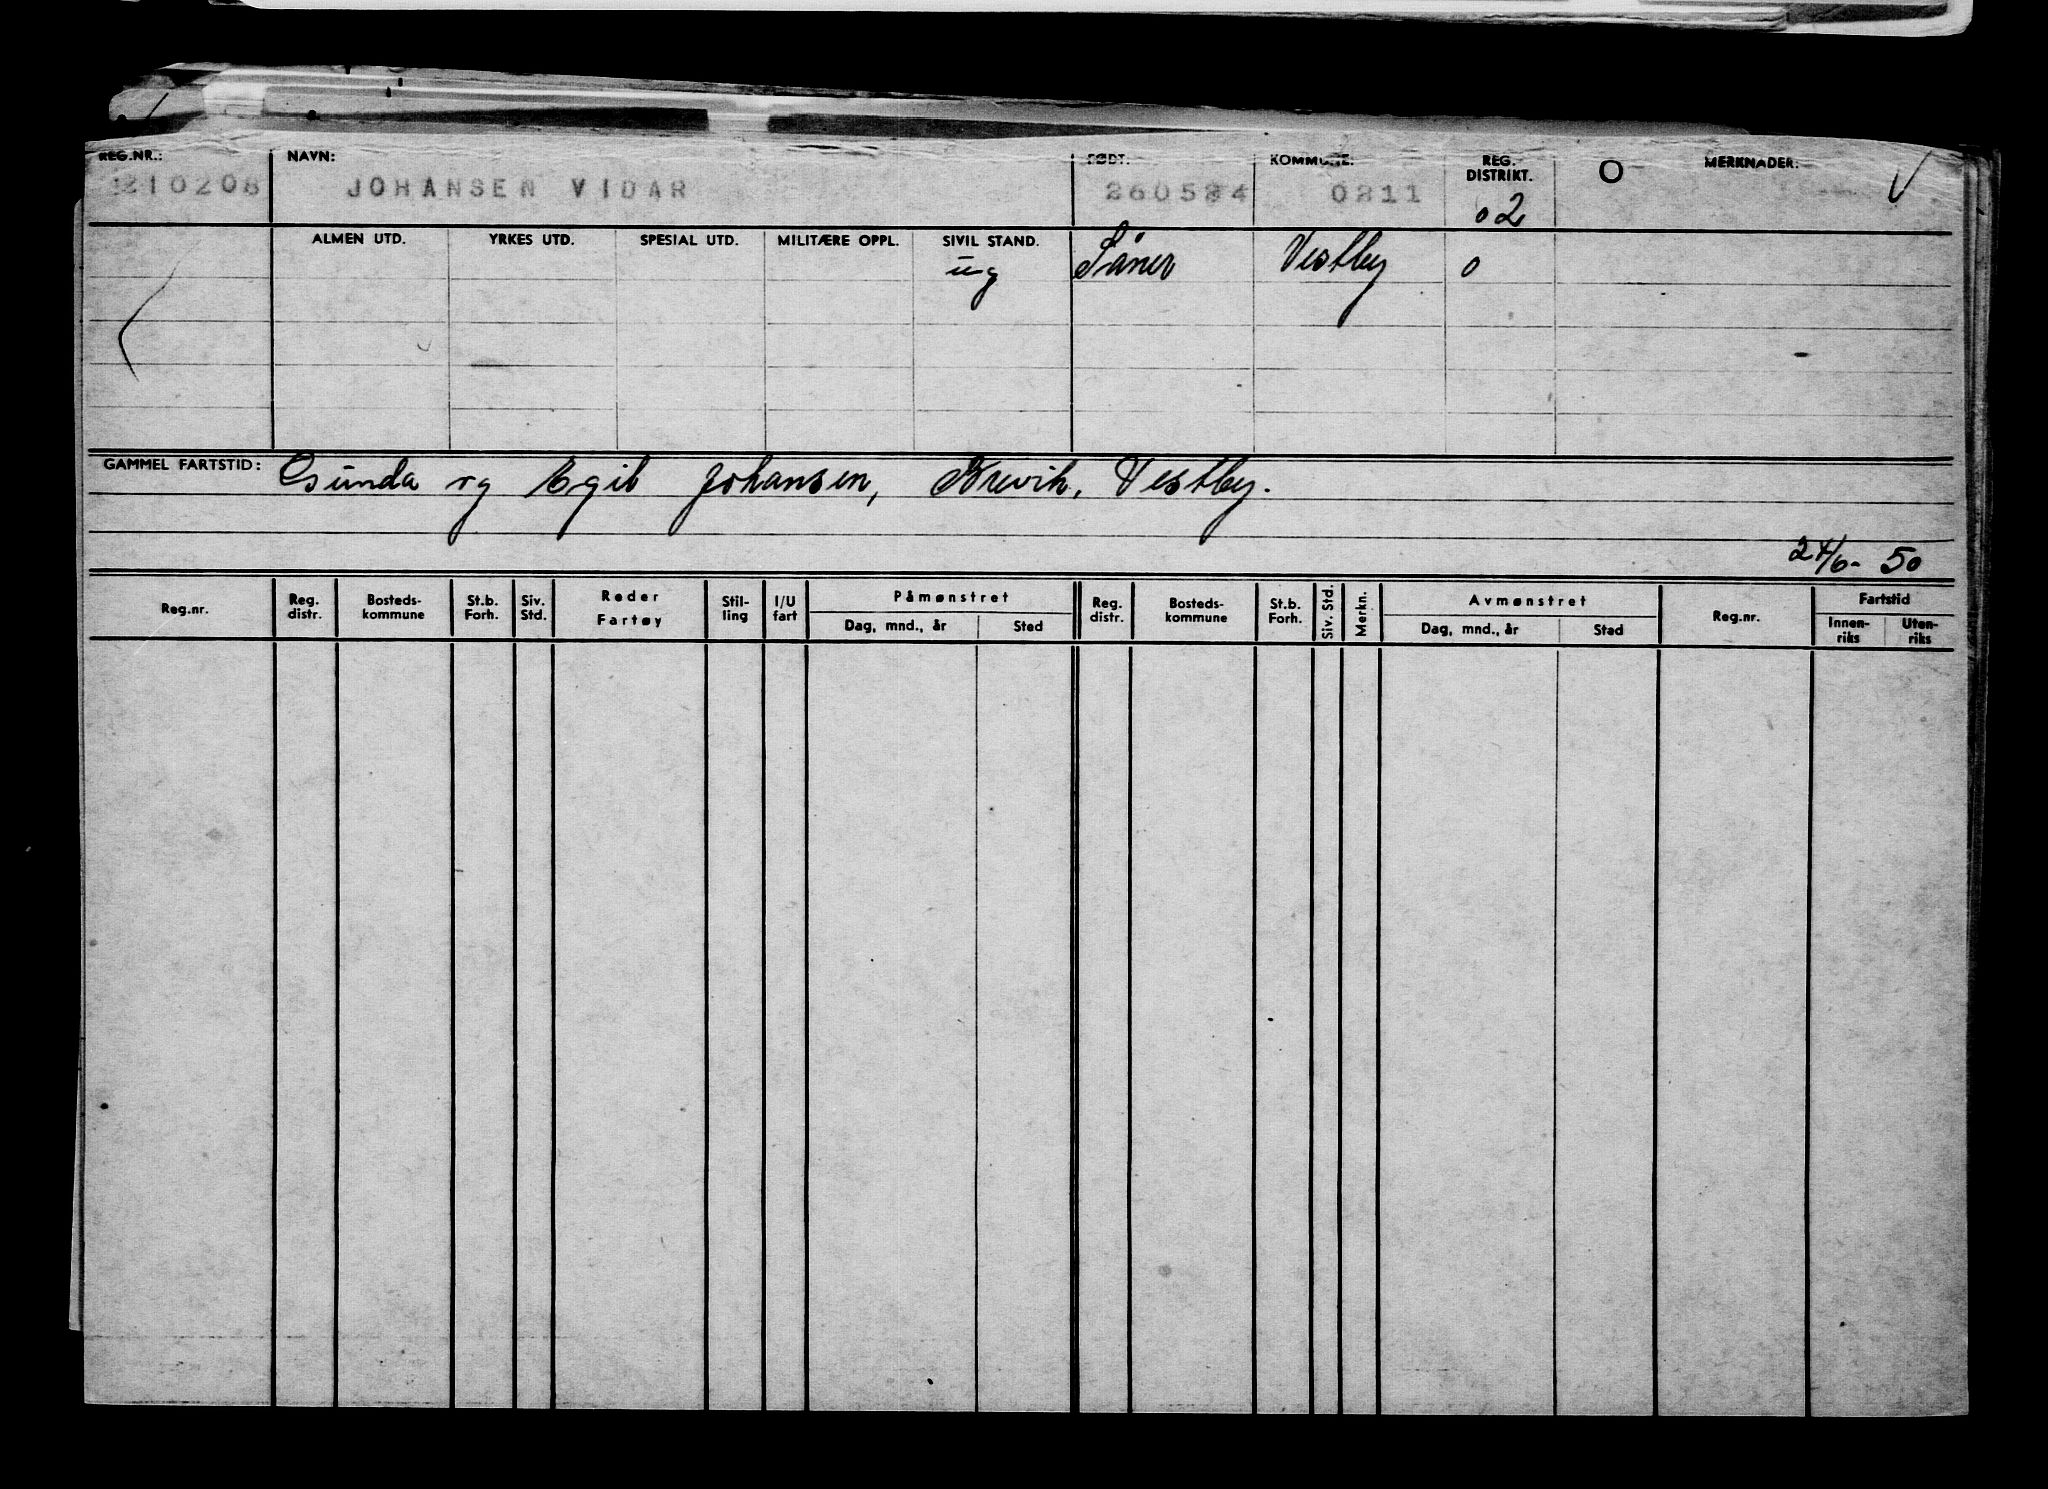 REG.NR.: NAVN: FØDT: KOMMUNE: REG. DISTRIKT. O MERKNADER:
210208 JOHANSEN VIDAR 260524 0211 02
ALMEN UTD. YRKES UTD. SPESIAL UTD. MILITÆRE OPPL. SIVIL STAND.
ug Såner Vestby 0
GAMMEL FARTSTID: Gunda og Egil Johansen, Brevik, Vestby.
24/6- 50
Reg.nr. Reg. distr. Bosteds- kommune St.b. Forh. Siv. Std. Reder Fartøy Stil- ling I/U fart Påmønstret Dag, mnd., år Sted Reg. distr. Bosteds- kommune St.b. Forh. Siv. Std. Merkn. Avmønstret Dag, mnd., år Stad Reg.nr. Fartstid Innen- riks Uten- riks